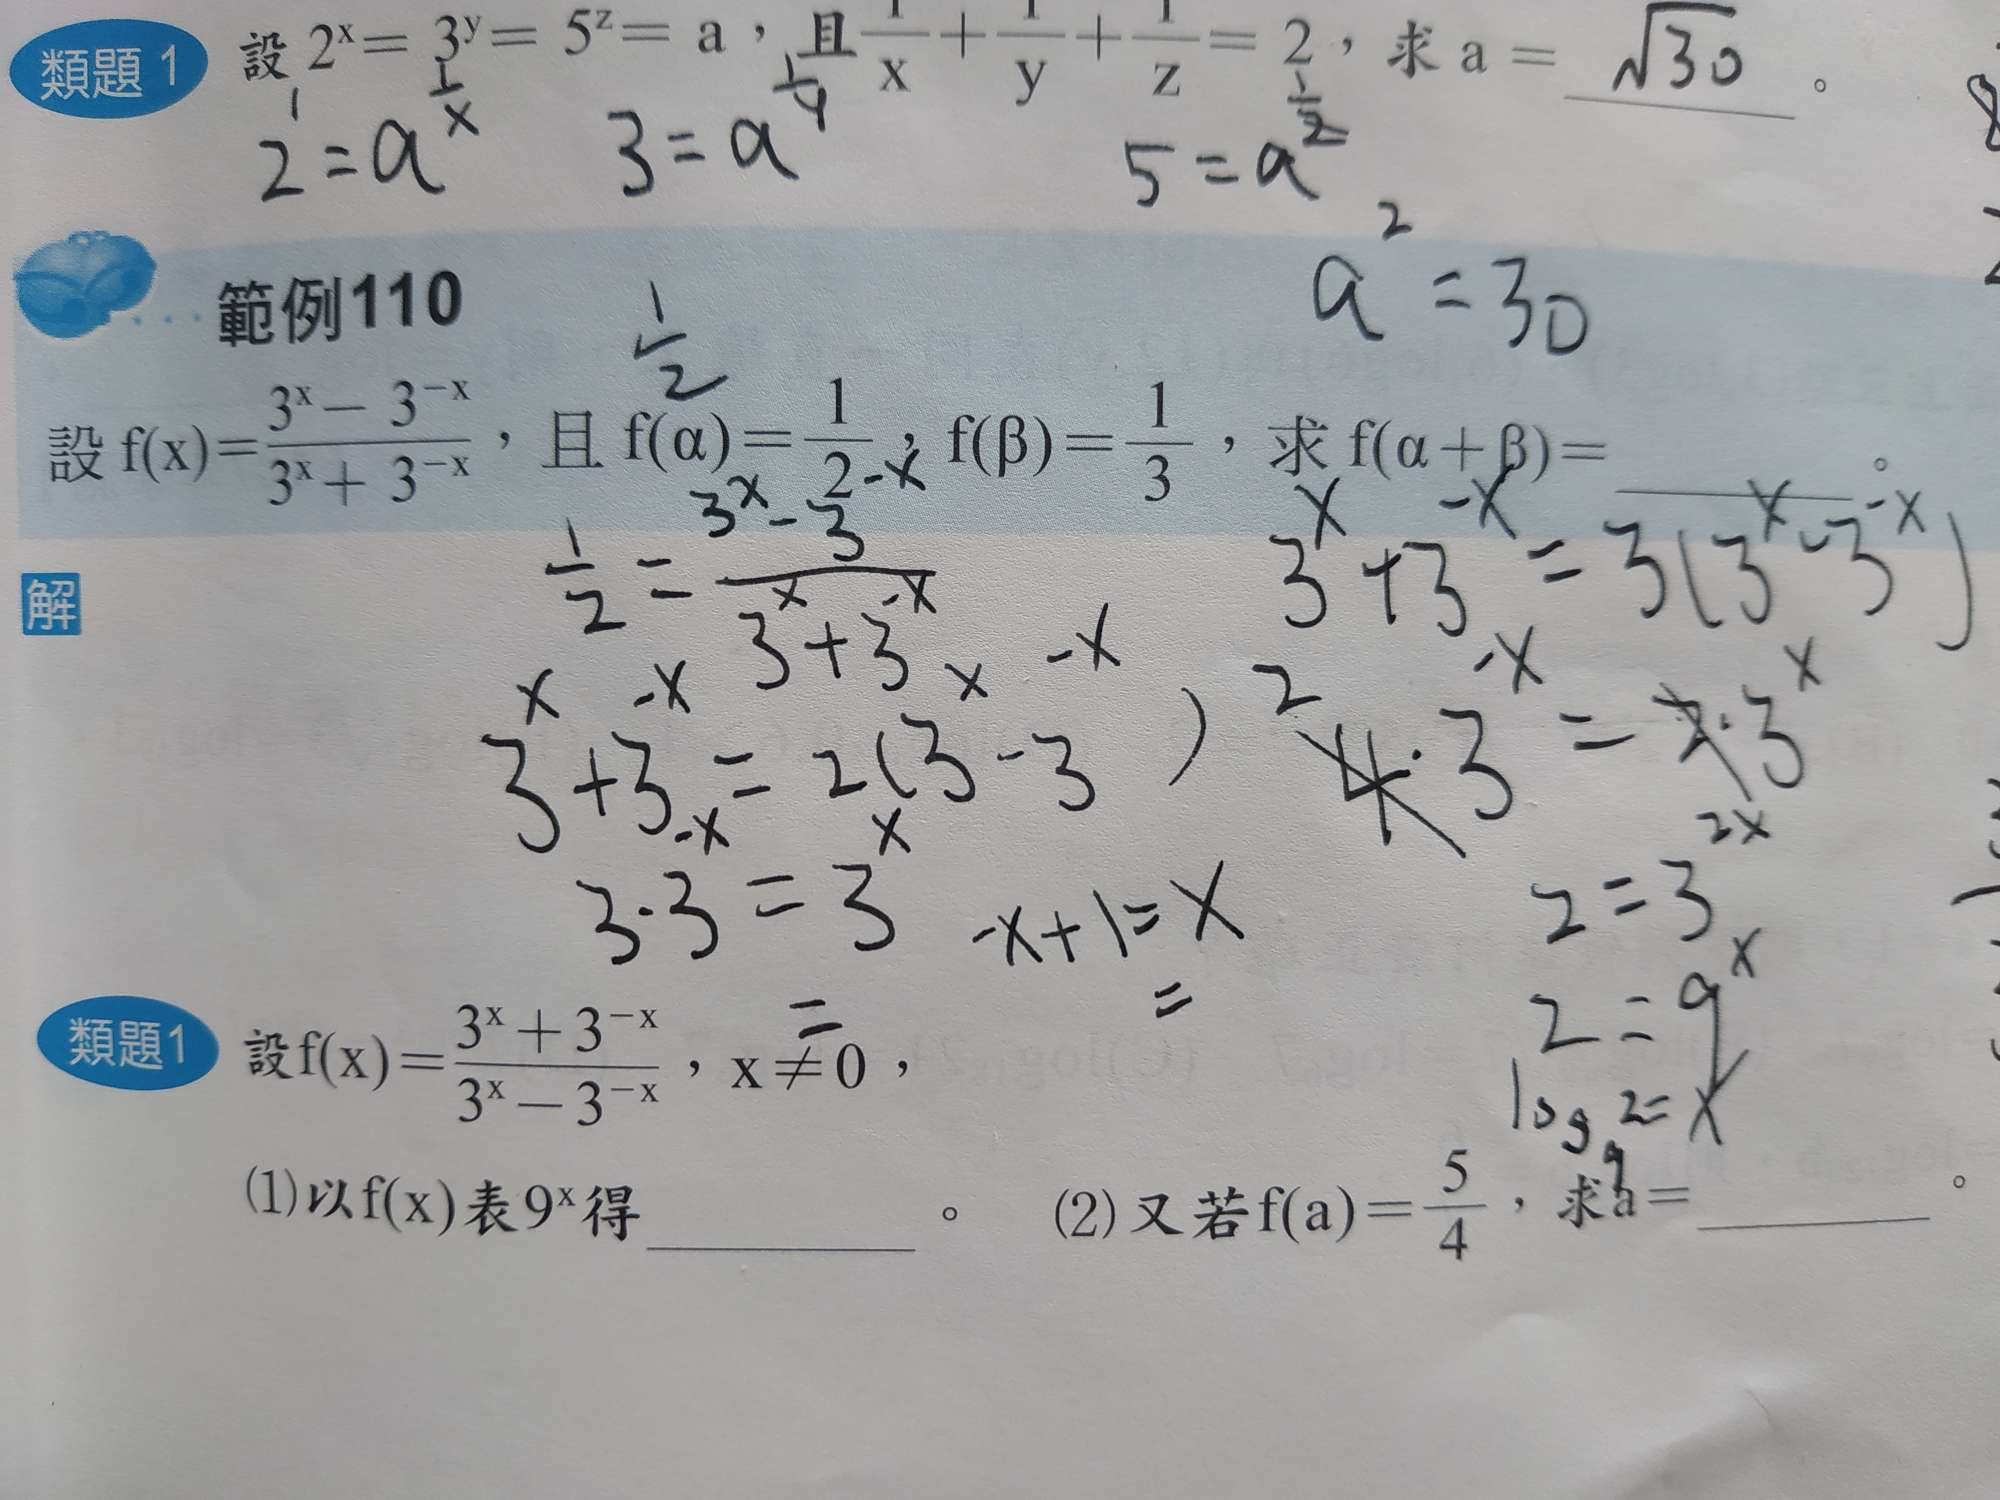 類題1 設 2ˣ = 3ʸ = 5ᶻ = a，且 1/x + 1/y + 1/z = 2，求 a = √30 。
2 = a^(1/x) 3 = a^(1/y) 5 = a^(1/z)
a² = 30
範例110
1/2
設 f(x) = (3ˣ − 3⁻ˣ)/(3ˣ + 3⁻ˣ)，且 f(α) = 1/2，f(β) = 1/3，求 f(α+β) = ＿＿＿。
解
1/2 = (3ˣ − 3⁻ˣ)/(3ˣ + 3⁻ˣ)
3ˣ + 3⁻ˣ = 2(3ˣ − 3⁻ˣ)
3·3⁻ˣ = 3ˣ -x+1=x
=
=
3ˣ + 3⁻ˣ = 3(3ˣ − 3⁻ˣ)
2 4·3⁻ˣ = 2·3ˣ
2 = 3²ˣ
2 = 9ˣ
log₉2 = x
類題1 設f(x) = (3ˣ + 3⁻ˣ)/(3ˣ − 3⁻ˣ)，x≠0，
(1)以f(x)表9ˣ得＿＿＿。 (2)又若f(a) = 5/4，求a = ＿＿＿。